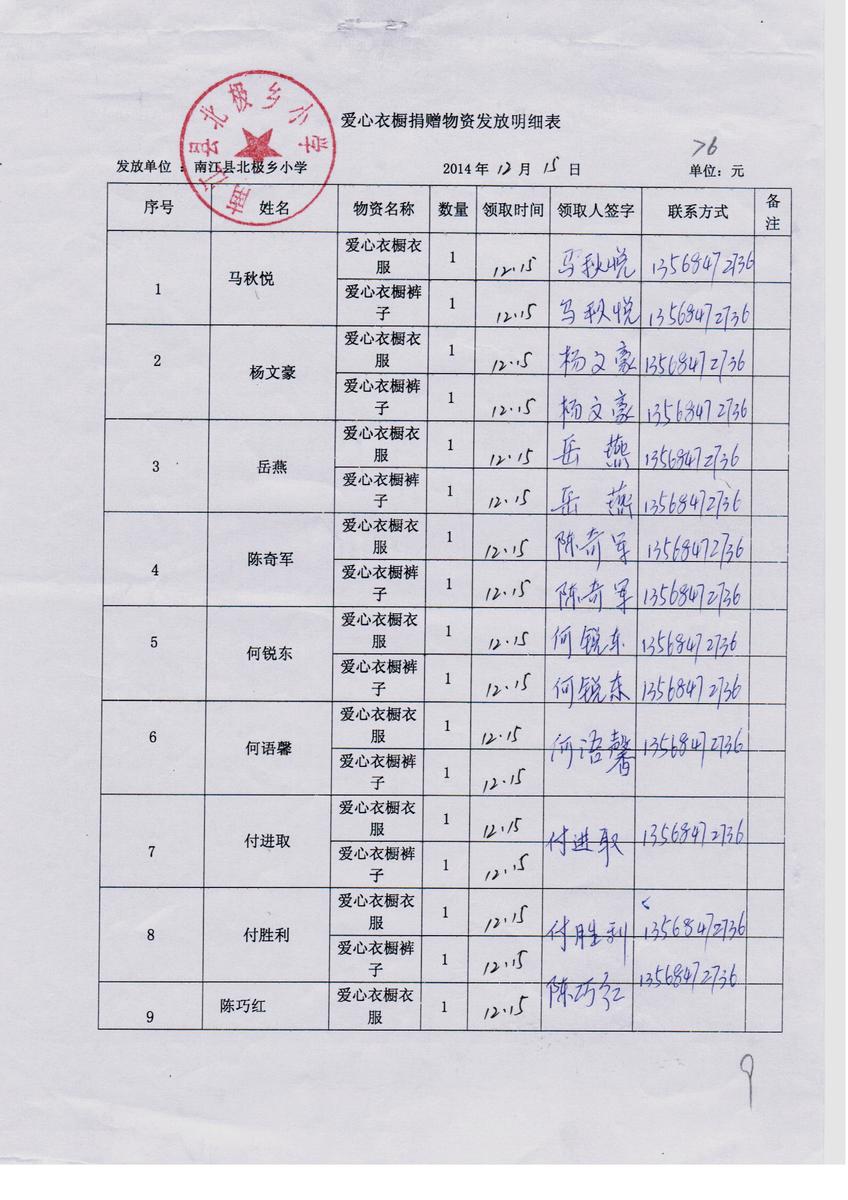 爱心衣橱捐赠物资发放明细表
南江县北极乡小学
76
发放单位 : 南江县北极乡小学 2014 年 12 月 15 日 单位: 元
序号 姓名 物资名称 数量 领取时间 领取人签字 联系方式 备注
1 马秋悦 爱心衣橱衣服 1 12.15 马秋悦 13568472736
爱心衣橱裤子 1 12.15 马秋悦 13568472736
2 杨文豪 爱心衣橱衣服 1 12.15 杨文豪 13568472736
爱心衣橱裤子 1 12.15 杨文豪 13568472736
3 岳燕 爱心衣橱衣服 1 12.15 岳燕 13568472736
爱心衣橱裤子 1 12.15 岳燕 13568472736
4 陈奇军 爱心衣橱衣服 1 12.15 陈奇军 13568472736
爱心衣橱裤子 1 12.15 陈奇军 13568472736
5 何锐东 爱心衣橱衣服 1 12.15 何锐东 13568472736
爱心衣橱裤子 1 12.15 何锐东 13568472736
6 何语馨 爱心衣橱衣服 1 12.15 何语馨 13568472736
爱心衣橱裤子 1 12.15
7 付进取 爱心衣橱衣服 1 12.15 付进取 13568472736
爱心衣橱裤子 1 12.15
8 付胜利 爱心衣橱衣服 1 12.15 付胜利 13568472736
爱心衣橱裤子 1 12.15
9 陈巧红 爱心衣橱衣服 1 12.15 陈巧红 13568472736
9